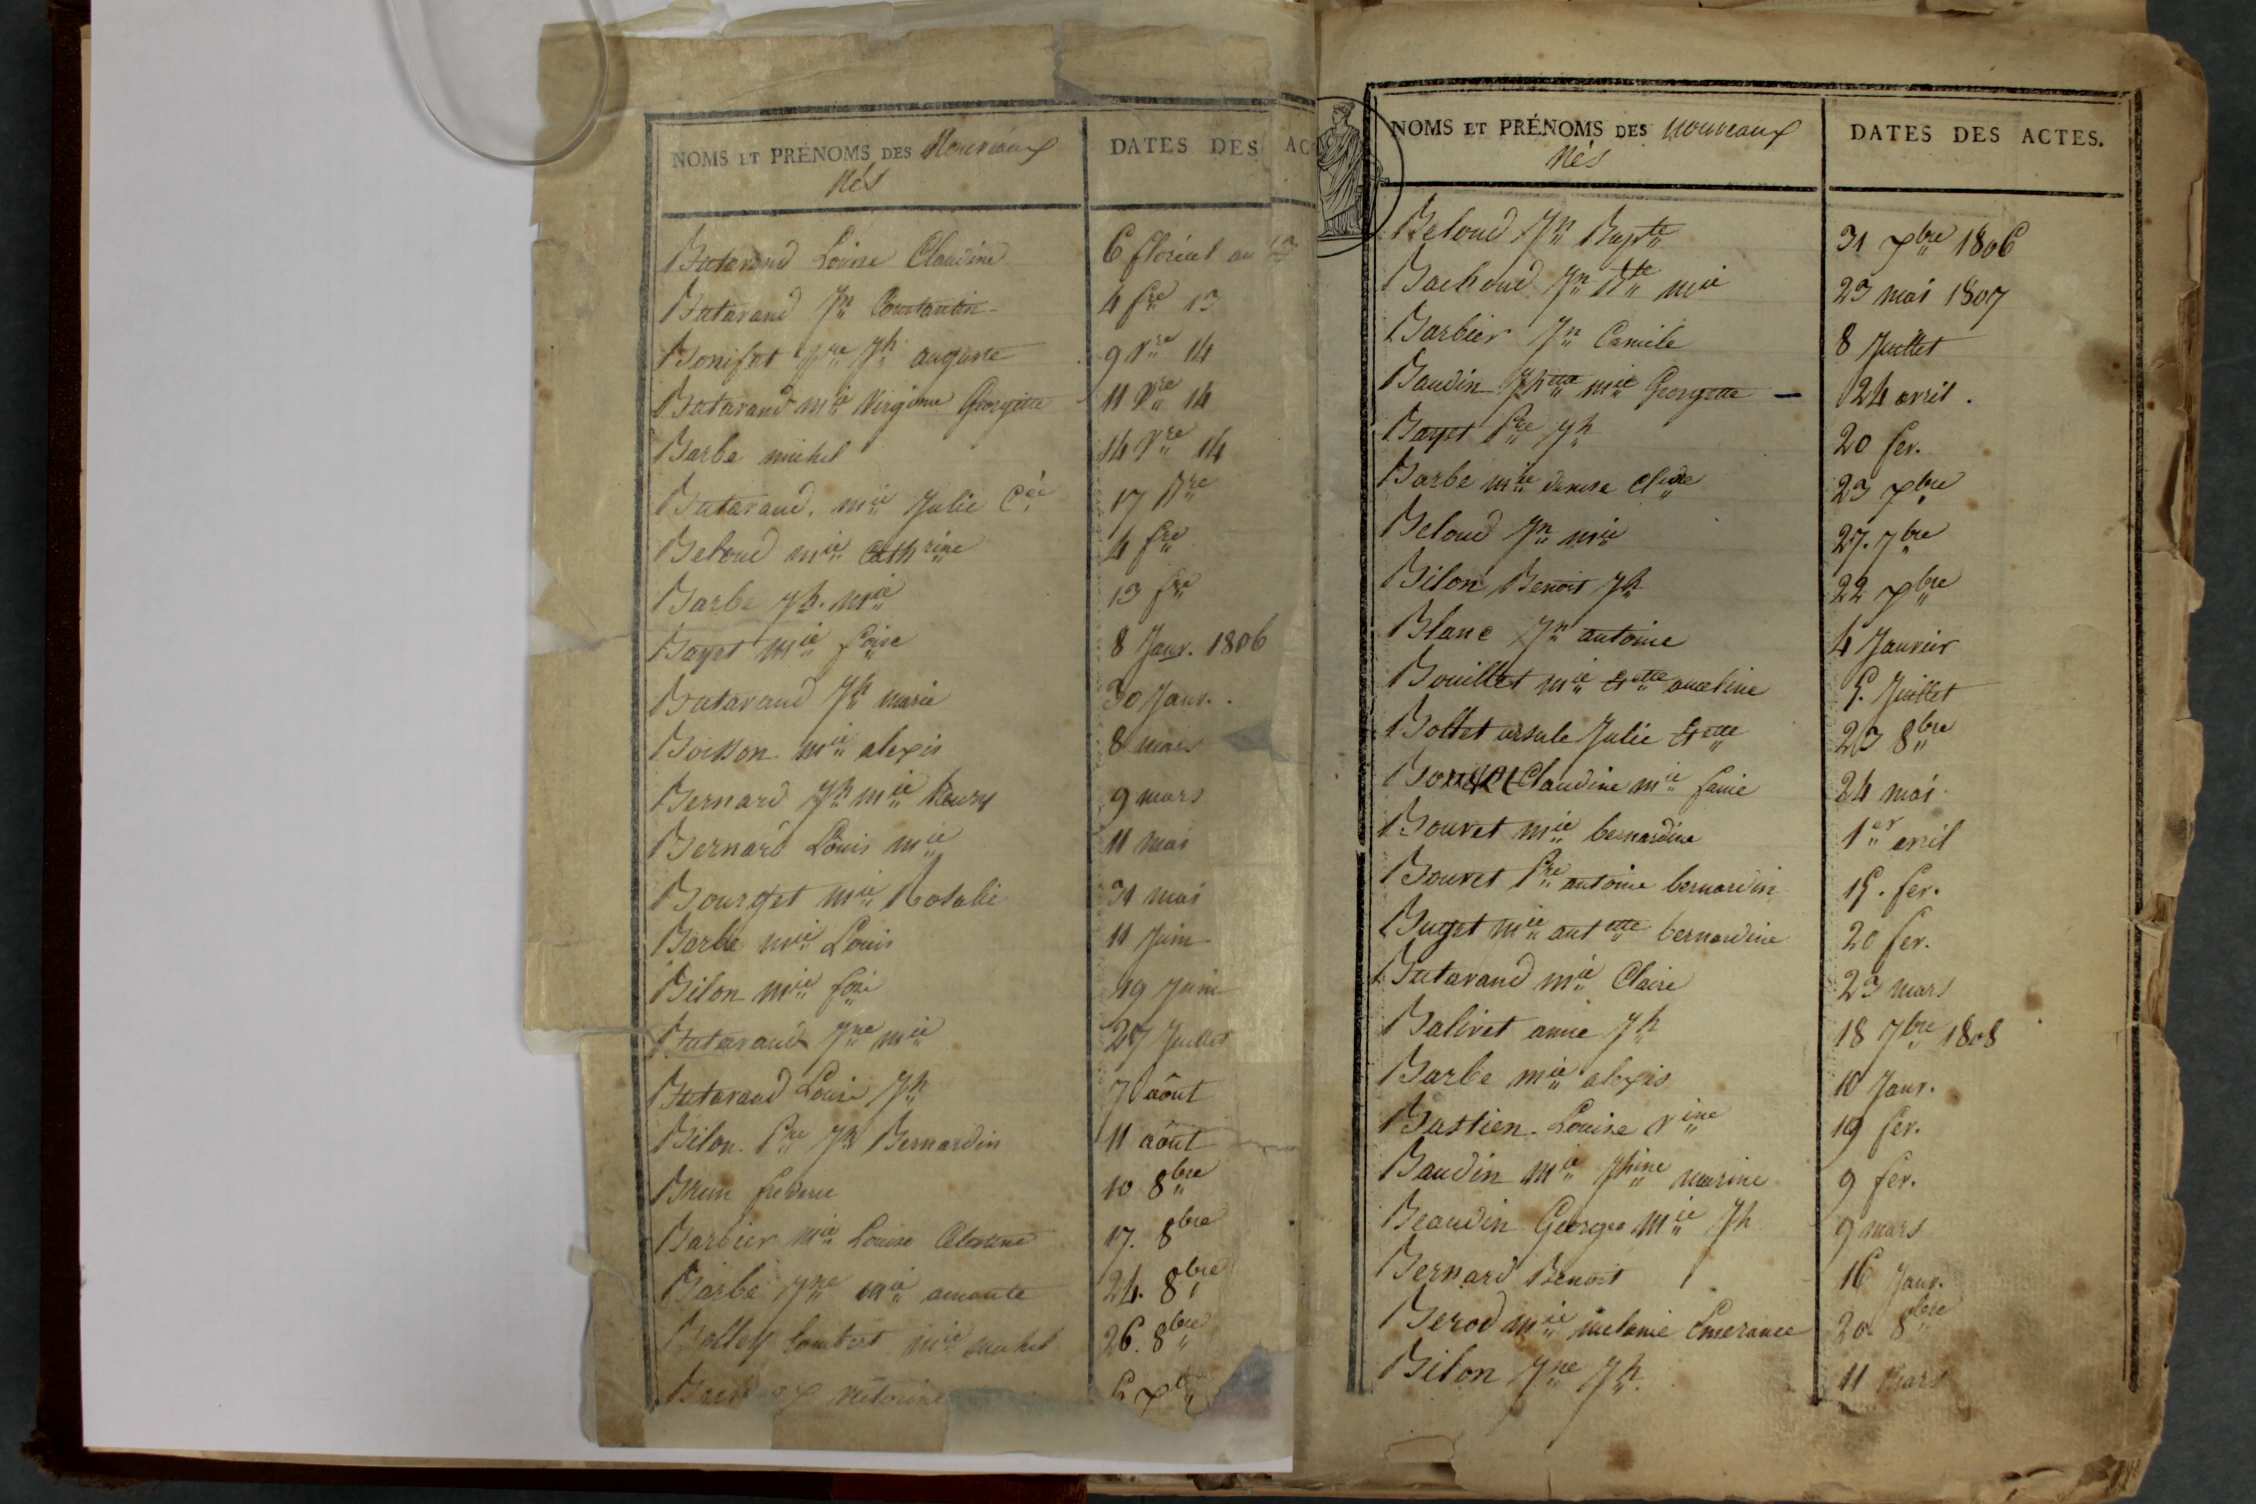 NOMS ET PRÉNOMS DES Nouveaux
Nés
DATES DES AC
Butavand Louise Claudine 6 floréal an 13
Butavand Jn Constantin 4 fre 13
Bonifet Jh auguste 9 Vre 14
Butavand mie Virginie Georgette 11 Vre 14
Barbe michel 14 Vre 14
Butavand mie Julie 17 Bre
Beloud mie Cathrine 4 fre
Barbe Jh. mie 13 fre
Bayet mie foise 8 Janv. 1806
Butavand Jh marie 30 Janv.
Boisson mie alexis 8 mars
Bernard Jh mie henry 9 mars
Bernard Louis mie 11 mai
Bourget mie Rosalie 31 mai
Barbe mie Louis 11 Juin
Bilon mie 19 Juin
Butavand Jne mie 27 Juillet
Butavand Louis Jh 7 août
Bilon Pre Jh Bernardin 11 août
Brun 10 8bre
Barbier mie Louise Celestine 17. 8bre
Barbe Jne mie amante 24. 8bre
mie michel 26. 8bre
NOMS ET PRÉNOMS DES nouveaux
Nés
DATES DES ACTES.
Beloud Jn Bapte 31 xbre 1806
Bachoud Jn Bte mie 23 mai 1807
Barbier Jn Camile 8 Juillet
Baudin Jhette mie Georgette — 24 avril.
Bayet Pre Jh 20 fev.
Barbe mie denise Clude 23 xbre
Beloud Jn mie 27. 7bre
Bilon Benoit Jh 22 xbre
Blanc Jn antoine 4 Janvier
Bouillet mie Etette 5. Juillet
Bottet ursule Julie Etette 23 8bre
Claudine mie fanie 24 mai
Bouvet mie bernardine 1er avril
Bouvet Pre antoine bernardin 15. fev.
Buget mie antette bernardine 20 fev.
Butavand mie Claire 23 mars
Balivet anne Jh 18 7bre 1808
Barbe mie alexis 10 Janv.
Bastien Louise Vine 19 fev.
Baudin mie Jhine marine 9 fev.
Beaudin Georges mie Jh 9 mars
Bernard Benoit 16 Janv.
Berod mie melanie Emerance 20 8bre
Bilon Jne Jh. 11 mars